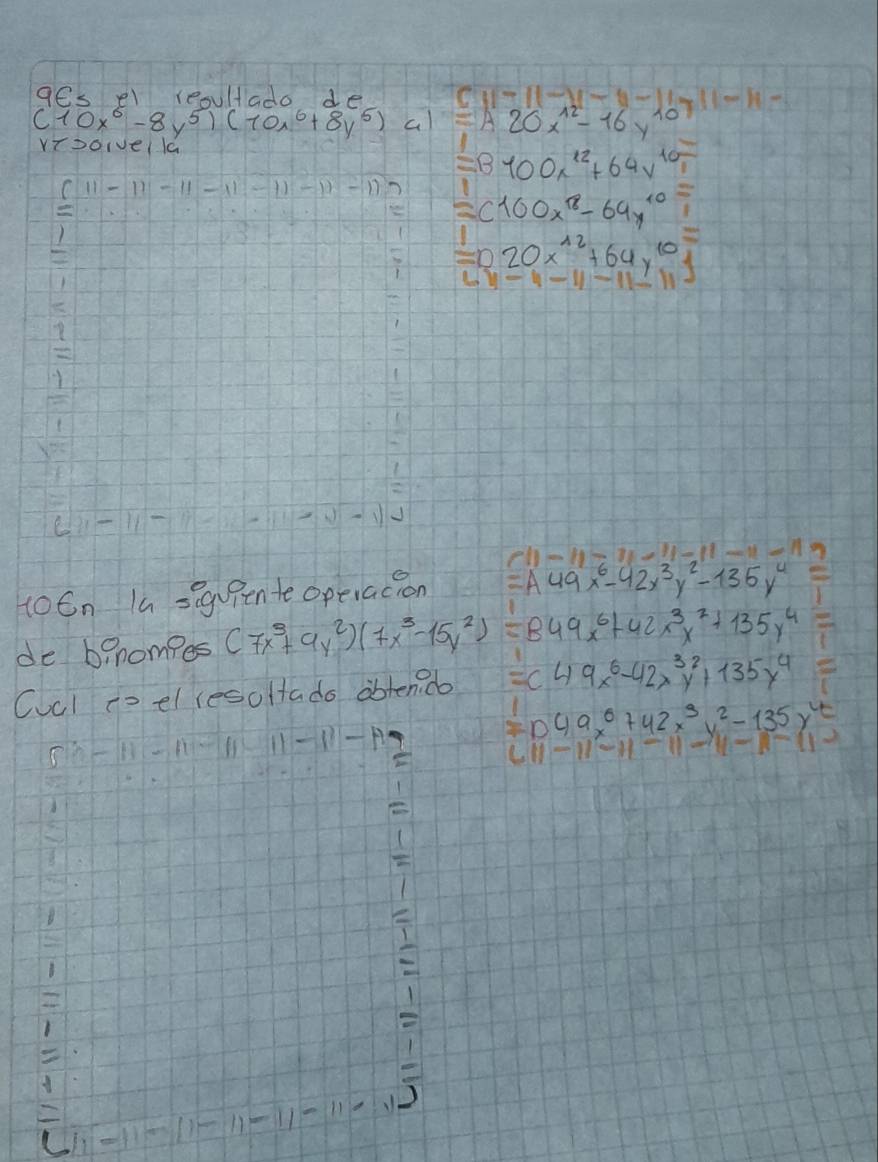 9Es el resultado de
(10x⁶-8y⁵)(10x⁶+8y⁵) al
resolverla
A 20x¹²-16y¹⁰
B 100x¹²+64y¹⁰
C 100x¹²-64y¹⁰
D 20x¹²+64y¹⁰
10 En la siguiente operación
de binomios (7x³+9y²)(7x³-15y²)
Cual es el resultado obtenido
A 49x⁶-42x³y²-135y⁴
B 49x⁶+42x³y²+135y⁴
C 49x⁶-42x³y²+135y⁴
D 49x⁶+42x³y²-135y⁴